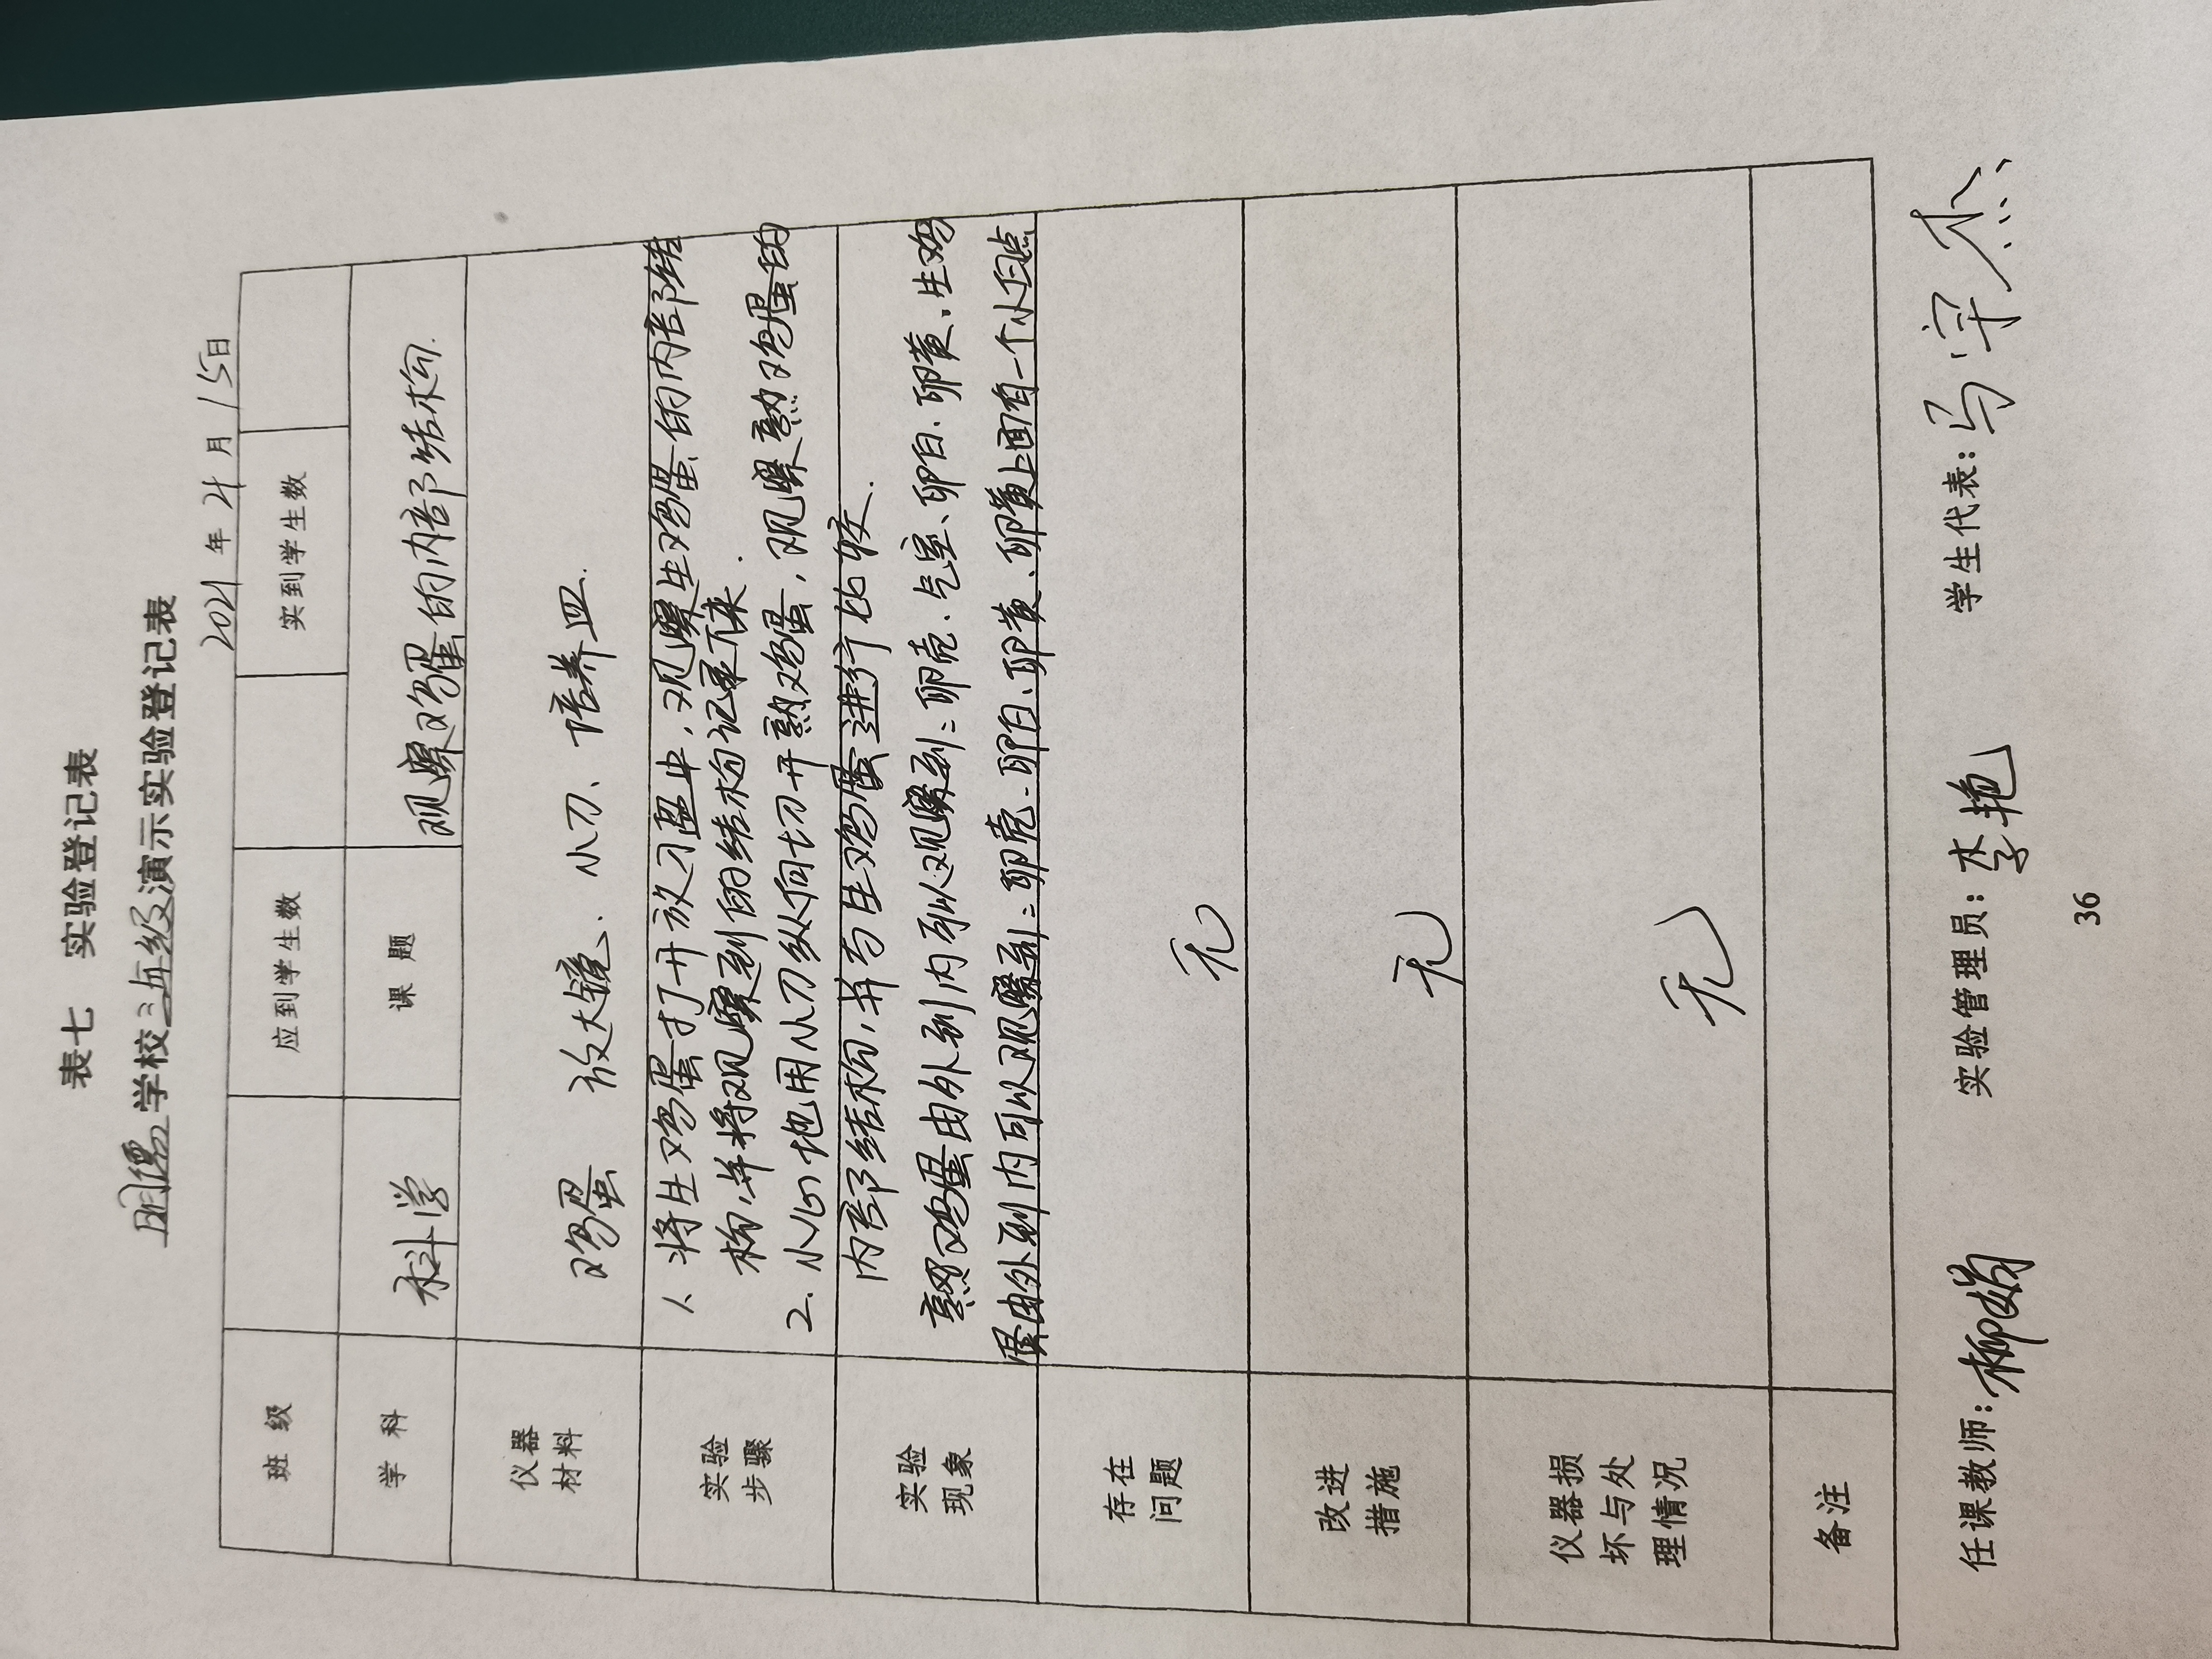 表七 实验登记表
明德学校三年级演示实验登记表
2021年4月15日
班 级 应到学生数 实到学生数
学 科 科学 课 题 观察鸡蛋的内部结构.
仪器材料 鸡蛋 放大镜、小刀、培养皿.
实验步骤
1、将生鸡蛋打开放在皿中,观察生鸡蛋的内部结
构,并将观察到的结构记录下来.
2. 小心地用小刀纵向切开熟鸡蛋,观察熟鸡蛋的
内部结构,并与生鸡蛋进行比较.
实验现象
熟鸡蛋由外到内可以观察到:卵壳、气室、卵白、卵黄。生鸡
蛋由外到内可以观察到:卵壳、卵白、卵黄、卵黄上面有一个小白点
存在问题 无
改进措施 无
仪器损坏与处理情况 无
备注
任课教师:柳娟 实验管理员:李艳 学生代表:马宇杰
36